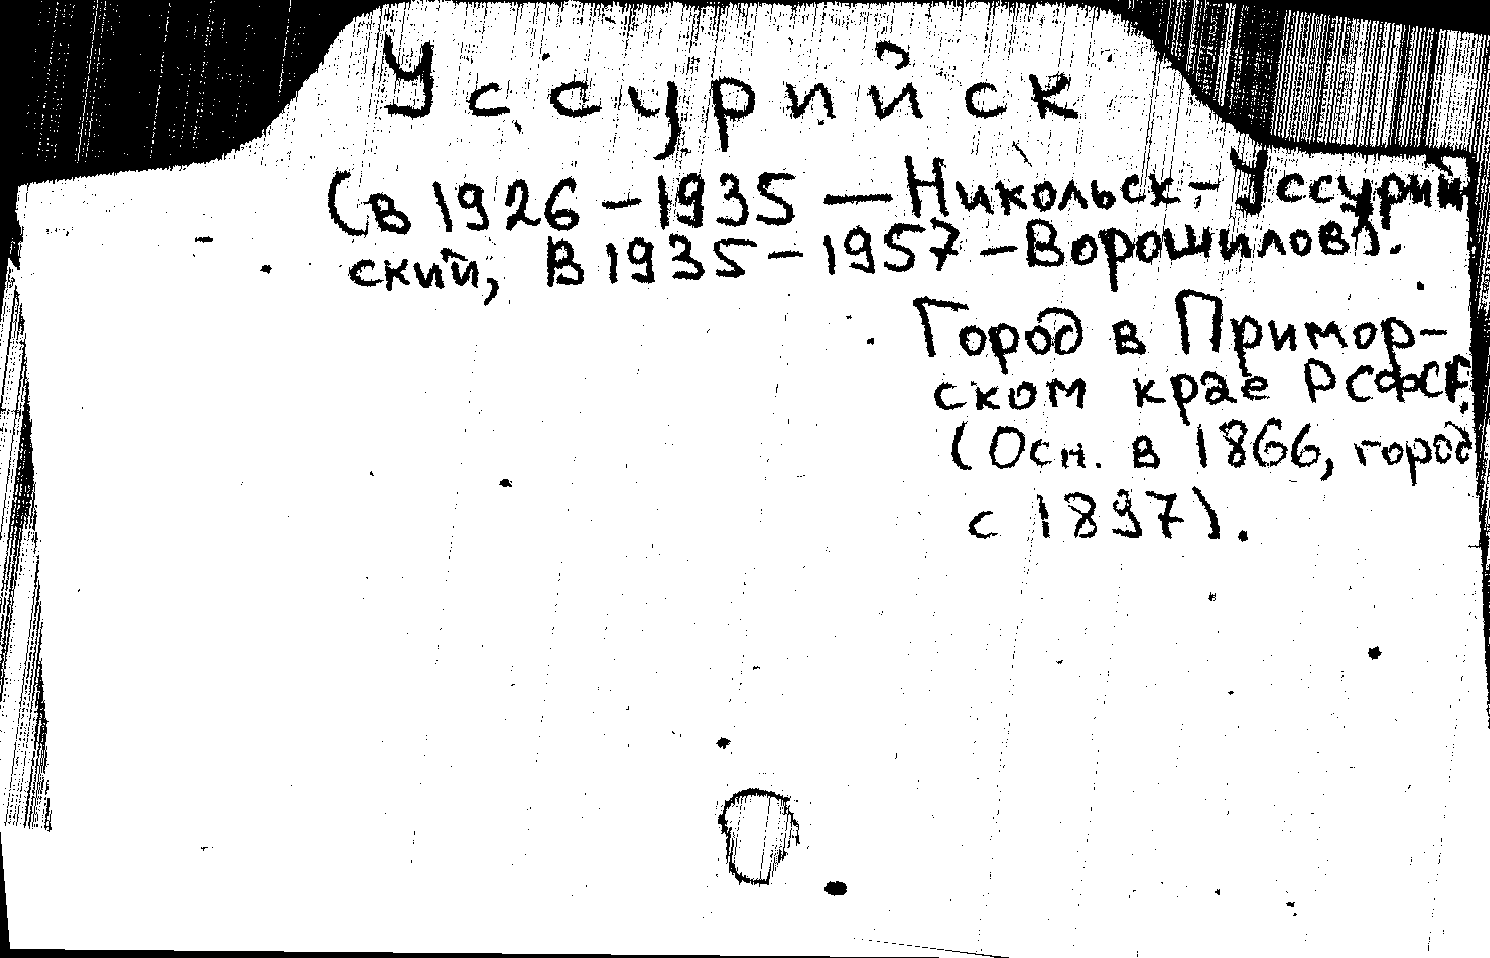 Уссурийск
(в 1926 – 1935 — Никольск-Уссурий
ский, В 1935 – 1957 – Ворошилов).
Город в Примор-
ском крае РСФСР.
(Осн. в 1866, город
с 1897).